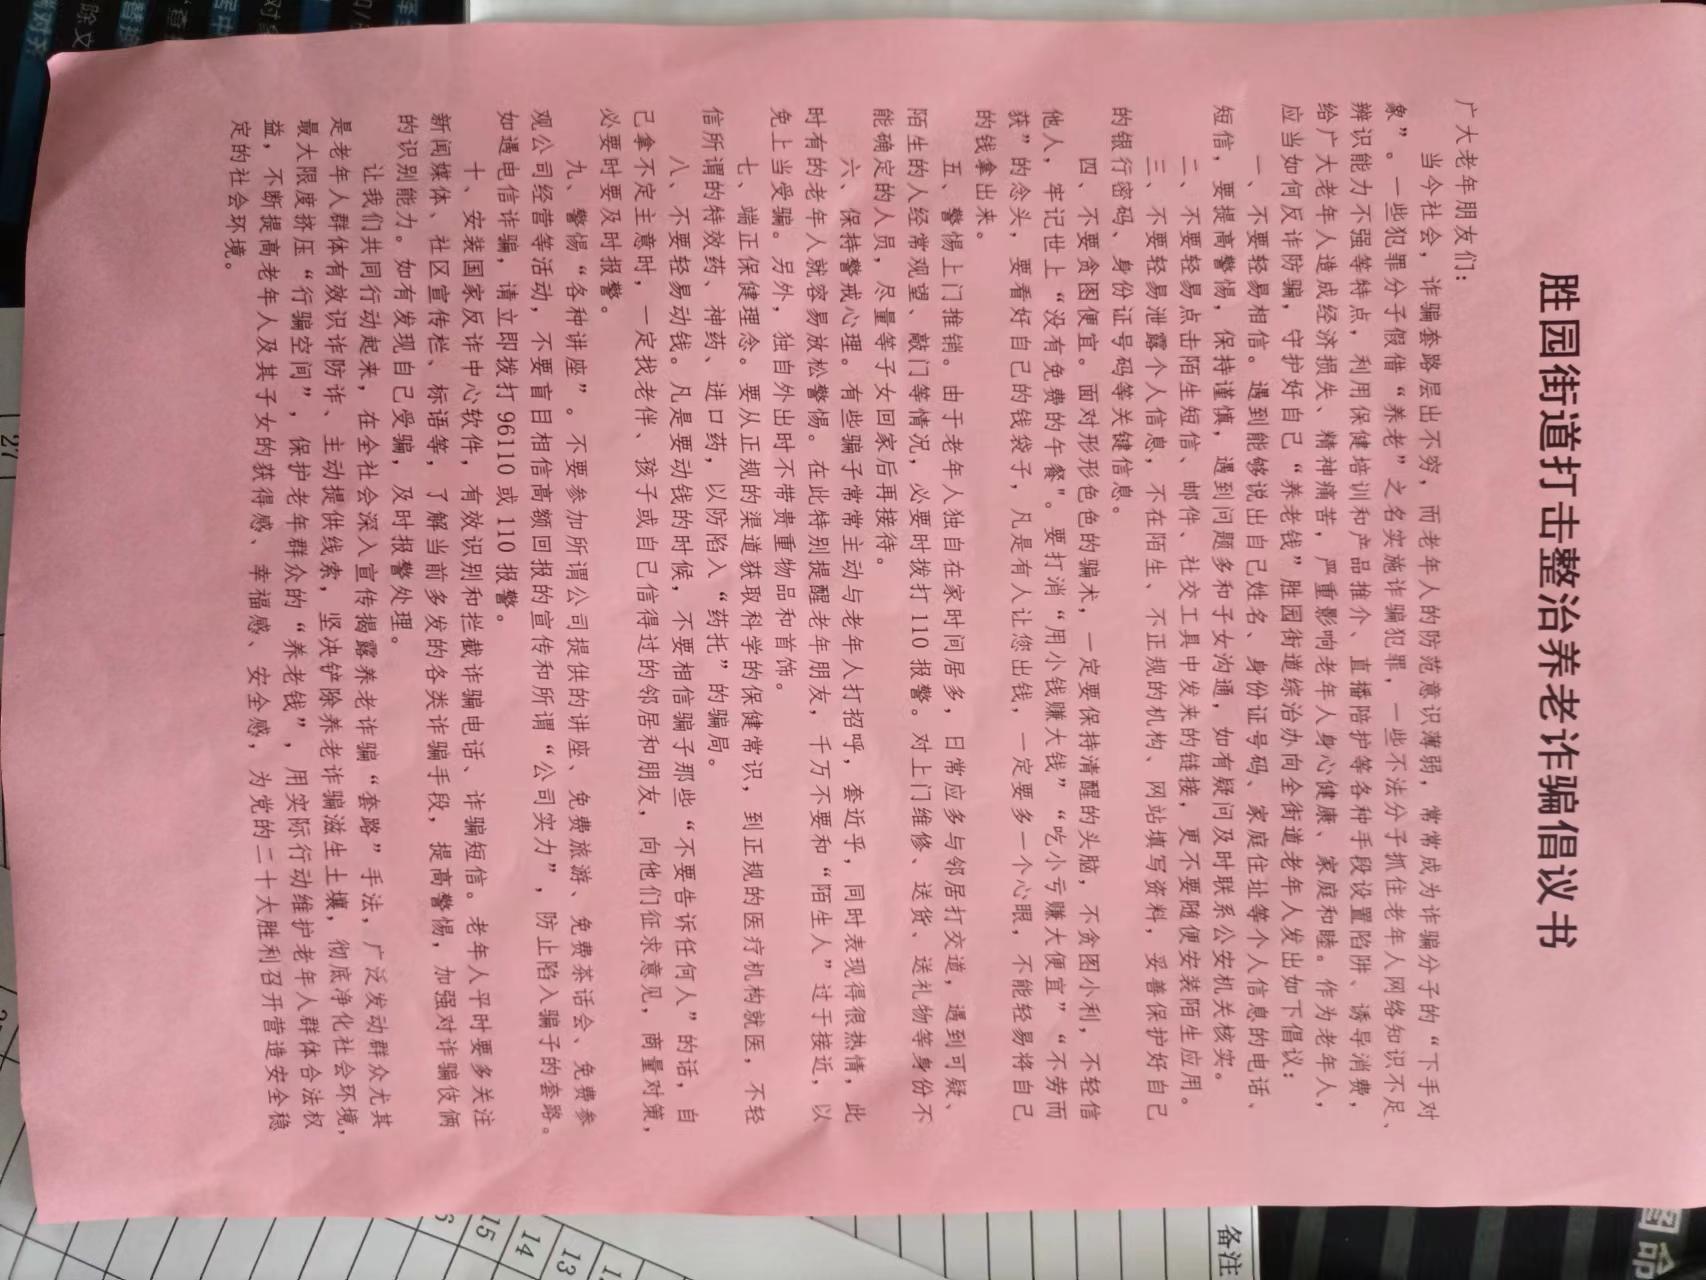 胜园街道打击整治养老诈骗倡议书
广大老年朋友们：
当今社会，诈骗套路层出不穷，而老年人的防范意识薄弱，常常成为诈骗分子的“下手对
象”。一些犯罪分子假借“养老”之名实施诈骗犯罪，一些不法分子抓住老年人网络知识不足、
辨识能力不强等特点，利用保健培训和产品推介、直播陪护等各种手段设置陷阱、诱导消费，
给广大老年人造成经济损失、精神痛苦，严重影响老年人身心健康、家庭和睦。作为老年人，
应当如何反诈防骗，守护好自己“养老钱”胜园街道综治办向全街道老年人发出如下倡议：
一、不要轻易相信。遇到能够说出自己姓名、身份证号码、家庭住址等个人信息的电话、
短信，要提高警惕，保持谨慎，遇到问题多和子女沟通，如有疑问及时联系公安机关核实。
二、不要轻易点击陌生短信、邮件、社交工具中发来的链接，更不要随便安装陌生应用。
三、不要轻易泄露个人信息，不在陌生、不正规的机构、网站填写资料，妥善保护好自己
的银行密码、身份证号码等关键信息。
四、不要贪图便宜。面对形形色色的骗术，一定要保持清醒的头脑，不贪图小利，不轻信
他人，牢记世上“没有免费的午餐"。要打消“用小钱赚大钱”“吃小亏赚大便宜”“不劳而
获”的念头，要看好自己的钱袋子，凡是有人让您出钱，一定要多一个心眼，不能轻易将自己
的钱拿出来。
五、警惕上门推销。由于老年人独自在家时间居多，日常应多与邻居打交道，遇到可疑、
陌生的人经常观望、敲门等情况，必要时拨打110报警。对上门维修、送货、送礼物等身份不
能确定的人员，尽量等子女回家后再接待。
六、保持警戒心理。有些骗子常常主动与老年人打招呼，套近乎，同时表现得很热情，此
时有的老年人就容易放松警惕。在此特别提醒老年朋友，千万不要和“陌生人”过于接近，以
免上当受骗。另外，独自外出时不带贵重物品和首饰。
七、端正保健理念。要从正规的渠道获取科学的保健常识，到正规的医疗机构就医，不轻
信所谓的特效药、神药、进口药，以防陷入“药托”的骗局。
八、不要轻易动钱。凡是要动钱的时候，不要相信骗子那些“不要告诉任何人”的话，自
己拿不定主意时，一定找老伴、孩子或自己信得过的邻居和朋友，向他们征求意见，商量对策，
必要时要及时报警。
九、警惕“各种讲座”。不要参加所谓公司提供的讲座、免费旅游、免费茶话会、免费参
观公司经营等活动，不要盲目相信高额回报的宣传和所谓“公司实力”，防止陷入骗子的套路。
如遇电信诈骗，请立即拨打96110或110报警。
十、安装国家反诈中心软件，有效识别和拦截诈骗电话、诈骗短信。老年人平时要多关注
新闻媒体、社区宣传栏、标语等，了解当前多发的各类诈骗手段，提高警惕，加强对诈骗伎俩
的识别能力。如有发现自己受骗，及时报警处理。
让我们共同行动起来，在全社会深入宣传揭露养老诈骗“套路”手法，广泛发动群众尤其
是老年人群体有效识诈防诈、主动提供线索，坚决铲除养老诈骗滋生土壤，彻底净化社会环境，
最大限度挤压“行骗空间”，保护老年群众的“养老钱”，用实际行动维护老年人群体合法权
益，不断提高老年人及其子女的获得感、幸福感、安全感，为党的二十大胜利召开营造安全稳
定的社会环境。
备注
13
14
15
27